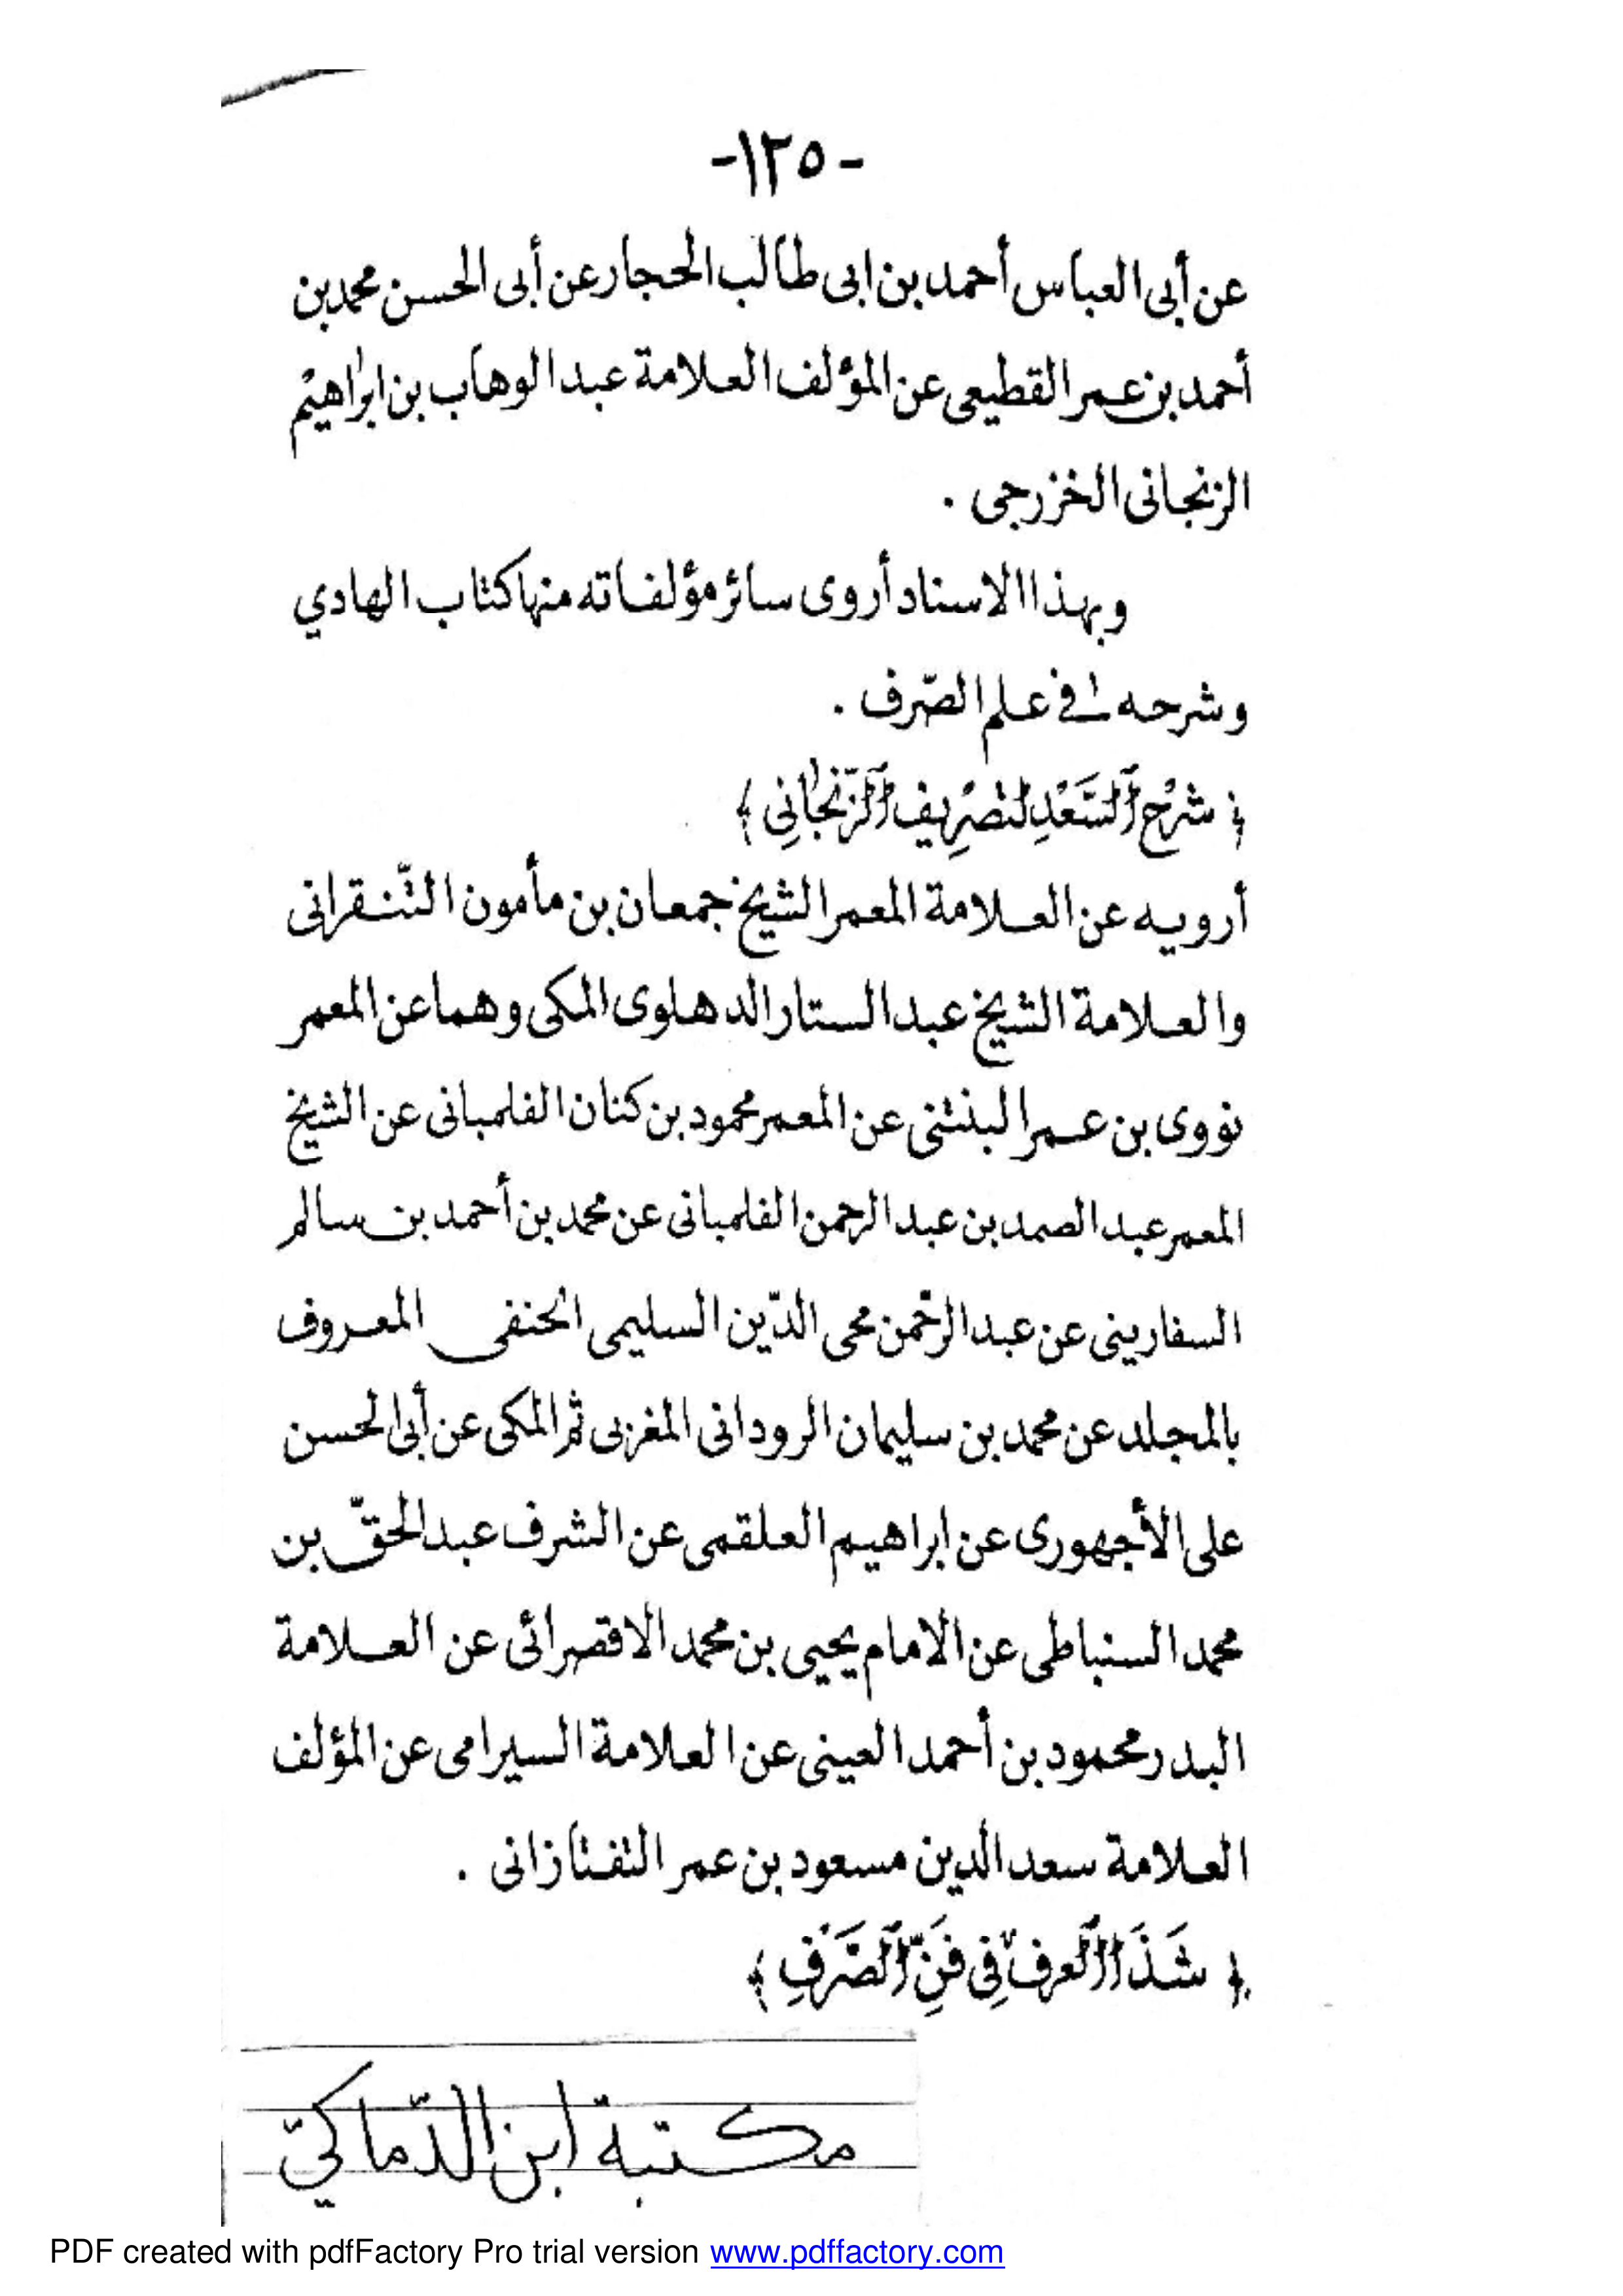 -١٢٥-
عن أبى العباس أحمد بن ابى طالب الحجار عن أبى الحسن محمد بن
أحمد بن عمر القطيعى عن المؤلف العلامة عبد الوهاب بن ابراهيم
الزنجانى الخزرجى .
وبهذا الاسناد أروى سائر مؤلفاته منها كتاب الهادي
وشرحه فى علم الصّرف .
﴿ شَرْحُ ٱلسَّعْدِ لِتَصْرِيفِ ٱلزَّنْجَانِي ﴾
أرويه عن العلامة المعمر الشيخ جمعان بن مأمون التّنقرانى
والعلامة الشيخ عبد الستار الدهلوى المكى وهما عن المعمر
نووى بن عمر البنتنى عن المعمر محمود بن كنان الفلمبانى عن الشيخ
المعمر عبد الصمد بن عبد الرحمن الفلمبانى عن محمد بن أحمد بن سالم
السفارينى عن عبد الرحمن محى الدّين السليمى الحنفى المعروف
بالمجلد عن محمد بن سليمان الرودانى المغربى ثم المكى عن أبى الحسن
على الأجهورى عن ابراهيم العلقمى عن الشرف عبد الحقّ بن
محمد السنباطى عن الامام يحيى بن محمد الاقصرائى عن العلامة
البدر محمود بن أحمد العينى عن العلامة السيرامى عن المؤلف
العلامة سعد الدين مسعود بن عمر التفتازانى .
﴿ شَذَا ٱلْعرف فِى فَنِّ ٱلصَّرْفِ ﴾
مكتبة ابن الدّماكيّ
PDF created with pdfFactory Pro trial version www.pdffactory.com